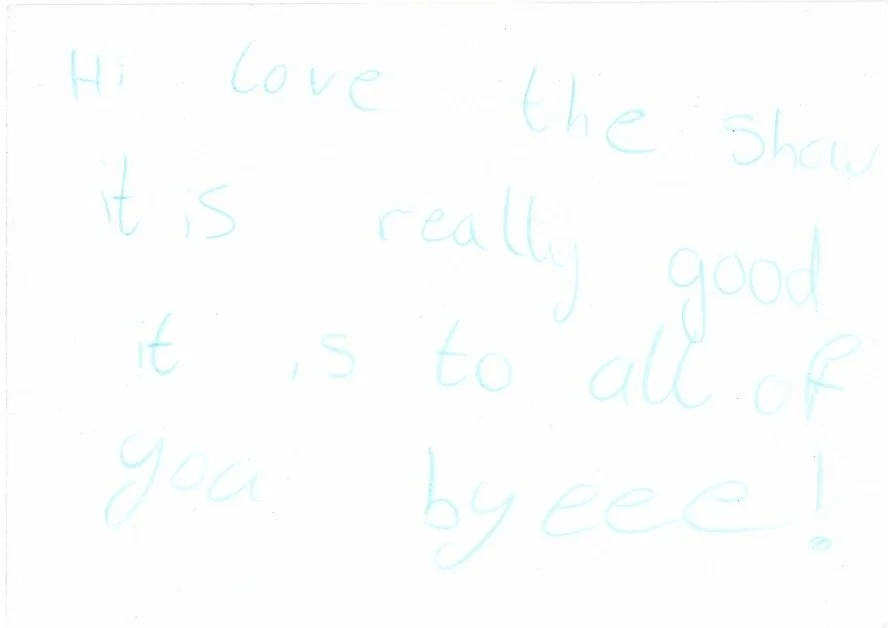 Hi love the show
it is really good
it is to all of
you byeee!